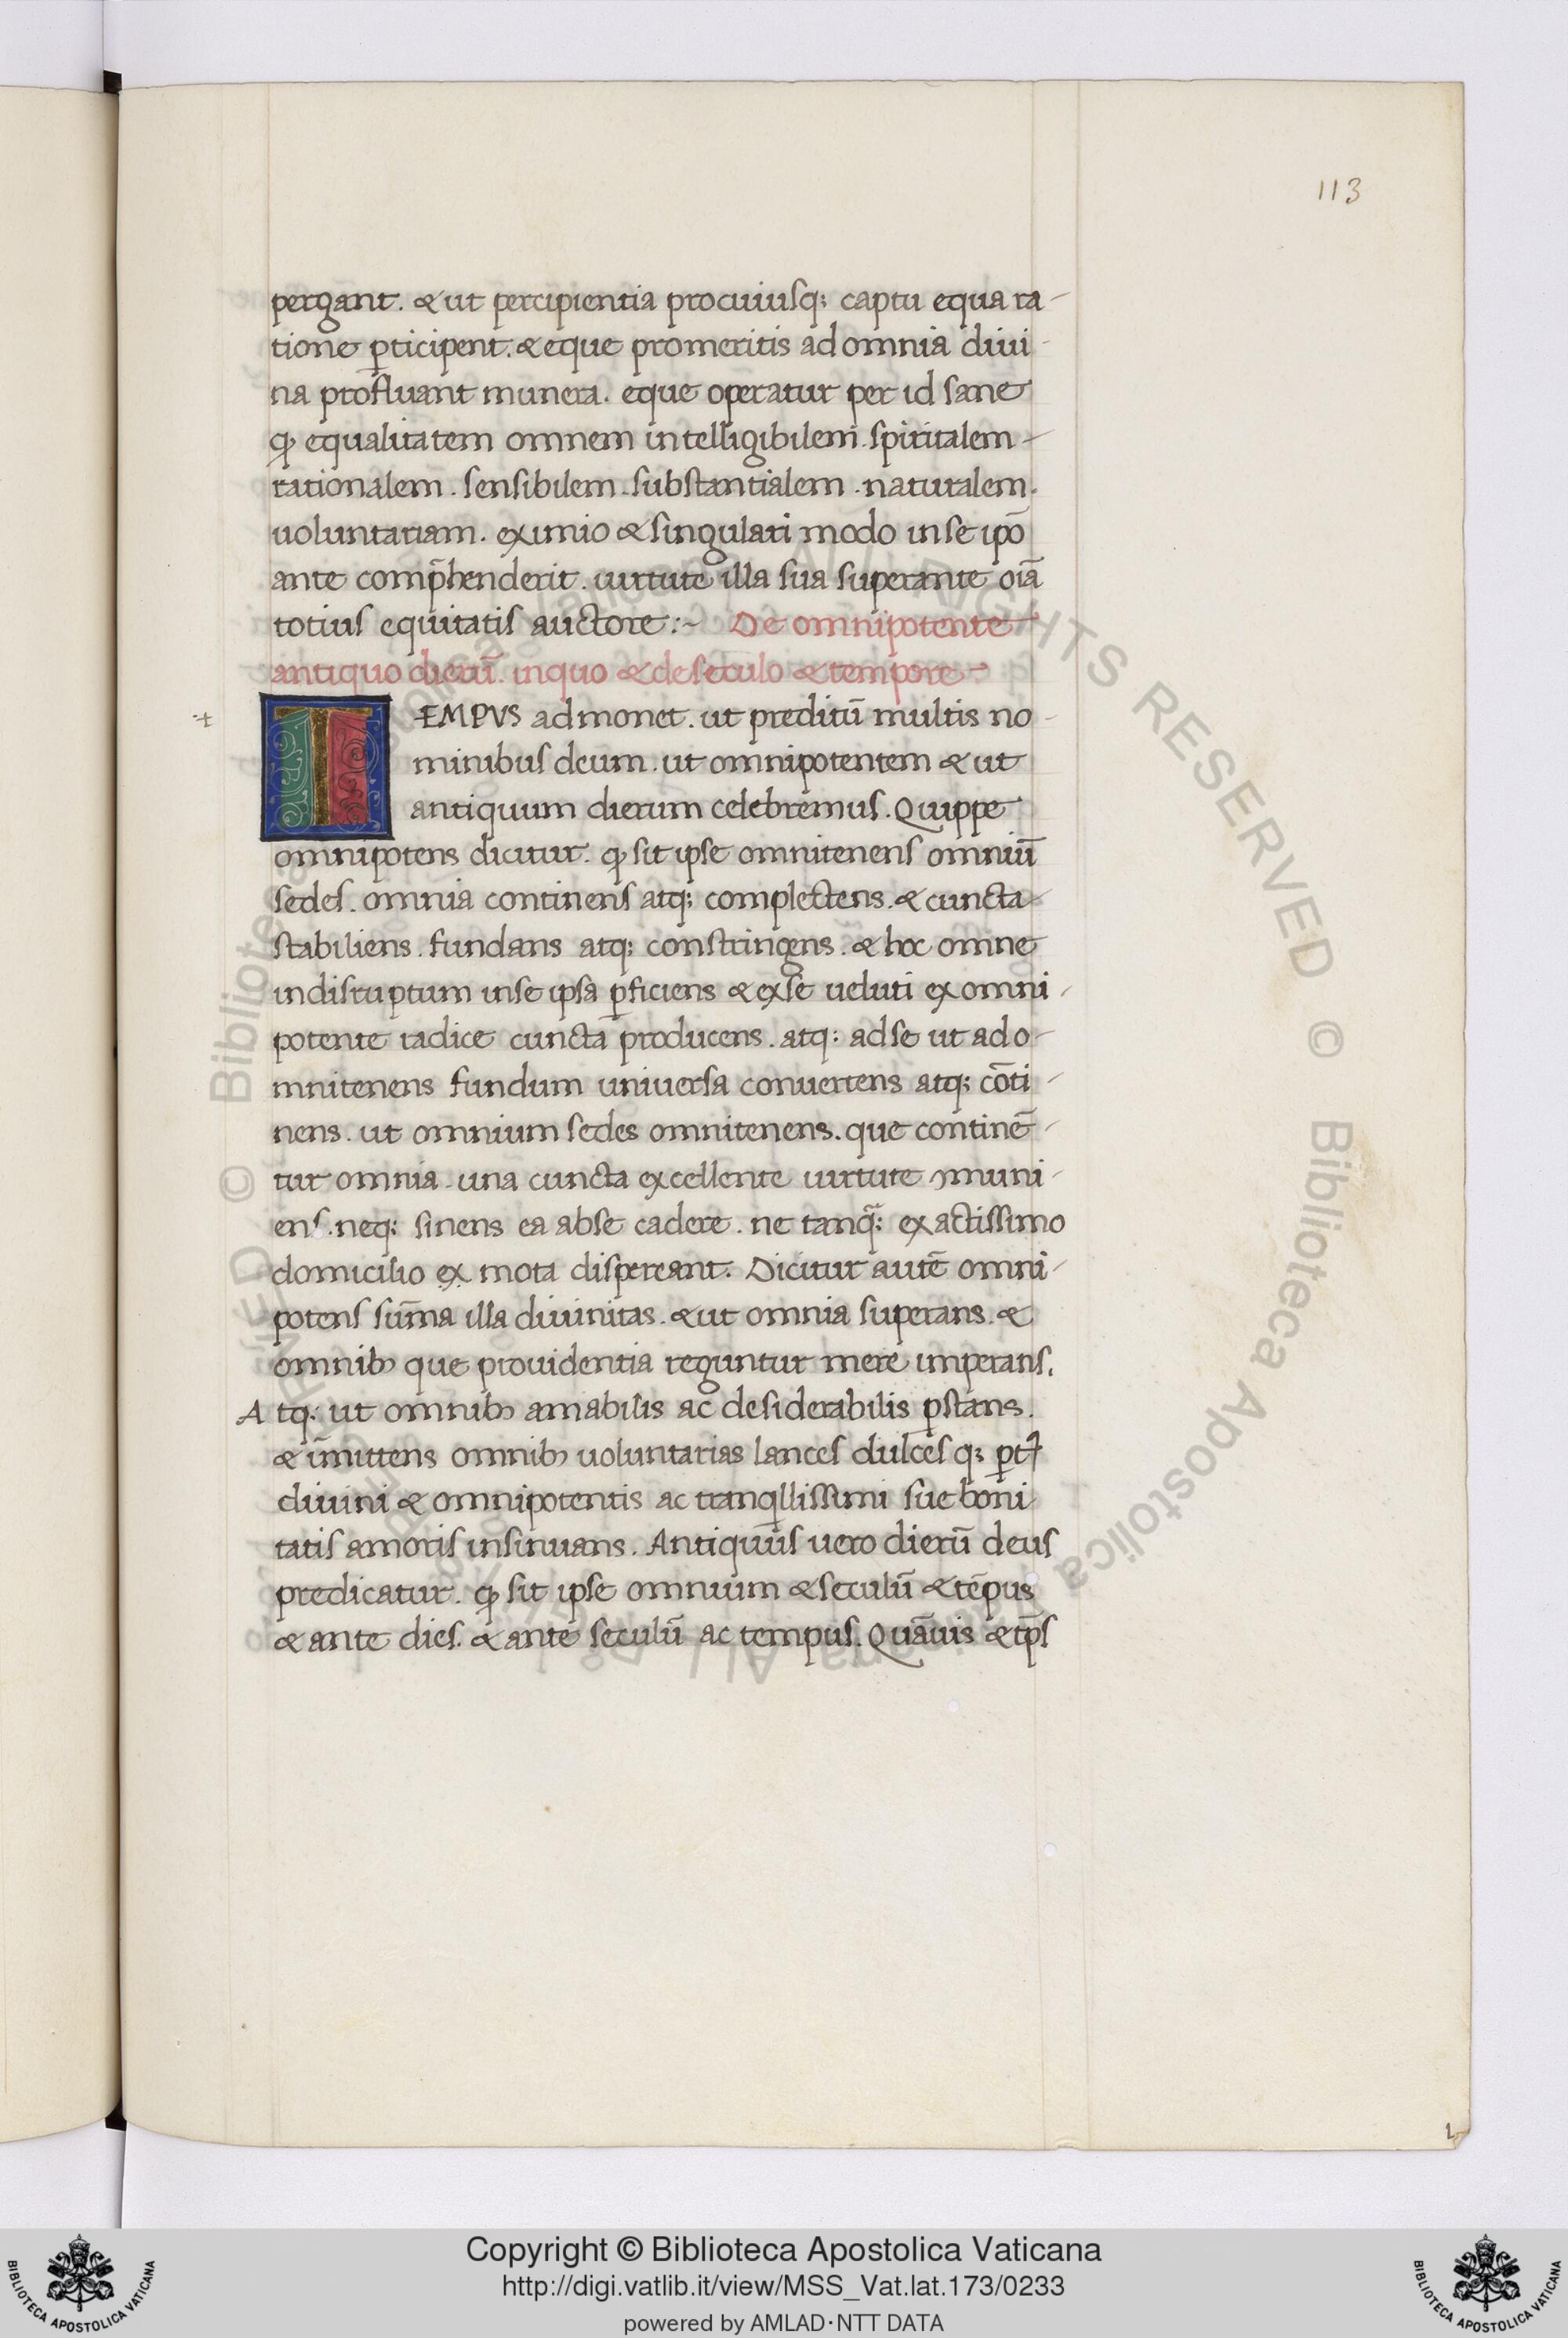 113
pergant. & ut percipientia procuiusq; captu equa ra-
tione p̲ticipent. & eque promeritis ad omnia diui-
na profluant munera. eque operatur per id sane
ꝙ equalitatem omnem intelligibilem. spiritalem-
rationalem. sensibilem. substantialem. naturalem.
uoluntariam. eximio & singulari modo inse ip̄o
ante comp̄henderit. uirtute illa sua superante oīa
totius equitatis auctore:~ De omnipotente
antiquo dierū. inquo & deseculo & tempore
TEMPVS admonet. ut preditū multis no-
minibus deum. ut omnipotentem & ut
antiquum dierum celebremus. Quippe
omnipotens dicitur. ꝙ sit ipse omnitenens omniū
sedes. omnia continens atq; complectens. & cuncta
stabiliens. fundans atq; constringens. & hoc omne
indisruptum inse ipsa ꝑficiens & exse ueluti ex omni-
potente radice cuncta producens. atq; adse ut ad o-
mnitenens fundum uniuersa conuertens atq; cōti-
nens. ut omnium sedes omnitenens. que continē-
tur omnia. una cuncta excellente uirtute ꝯmuni-
ens. neq; sinens ea abse cadere. ne tanq̄; exactissimo
domicilio ex mota dispereant. Dicitur autē omni-
potens sūma illa diuinitas. & ut omnia superans. &
omnibꝰ que prouidentia reguntur mere imperans.
Atq; ut omnibꝰ amabilis ac desiderabilis p̱stans.
& īmittens omnibꝰ uoluntarias lances dulces q;
diuini & omnipotentis ac tranqllissimi sue boni-
tatis amoris insinuans. Antiquus uero dierū deus
predicatur. ꝙ sit ipse omnium & seculū & tēpus
& ante dies. & ante seculū ac tempus. Quāuis & tp̄s
Copyright © Biblioteca Apostolica Vaticana
http://digi.vatlib.it/view/MSS_Vat.lat.173/0233
powered by AMLAD·NTT DATA
BIBLIOTECA APOSTOLICA VATICANA
BIBLIOTECA APOSTOLICA VATICANA